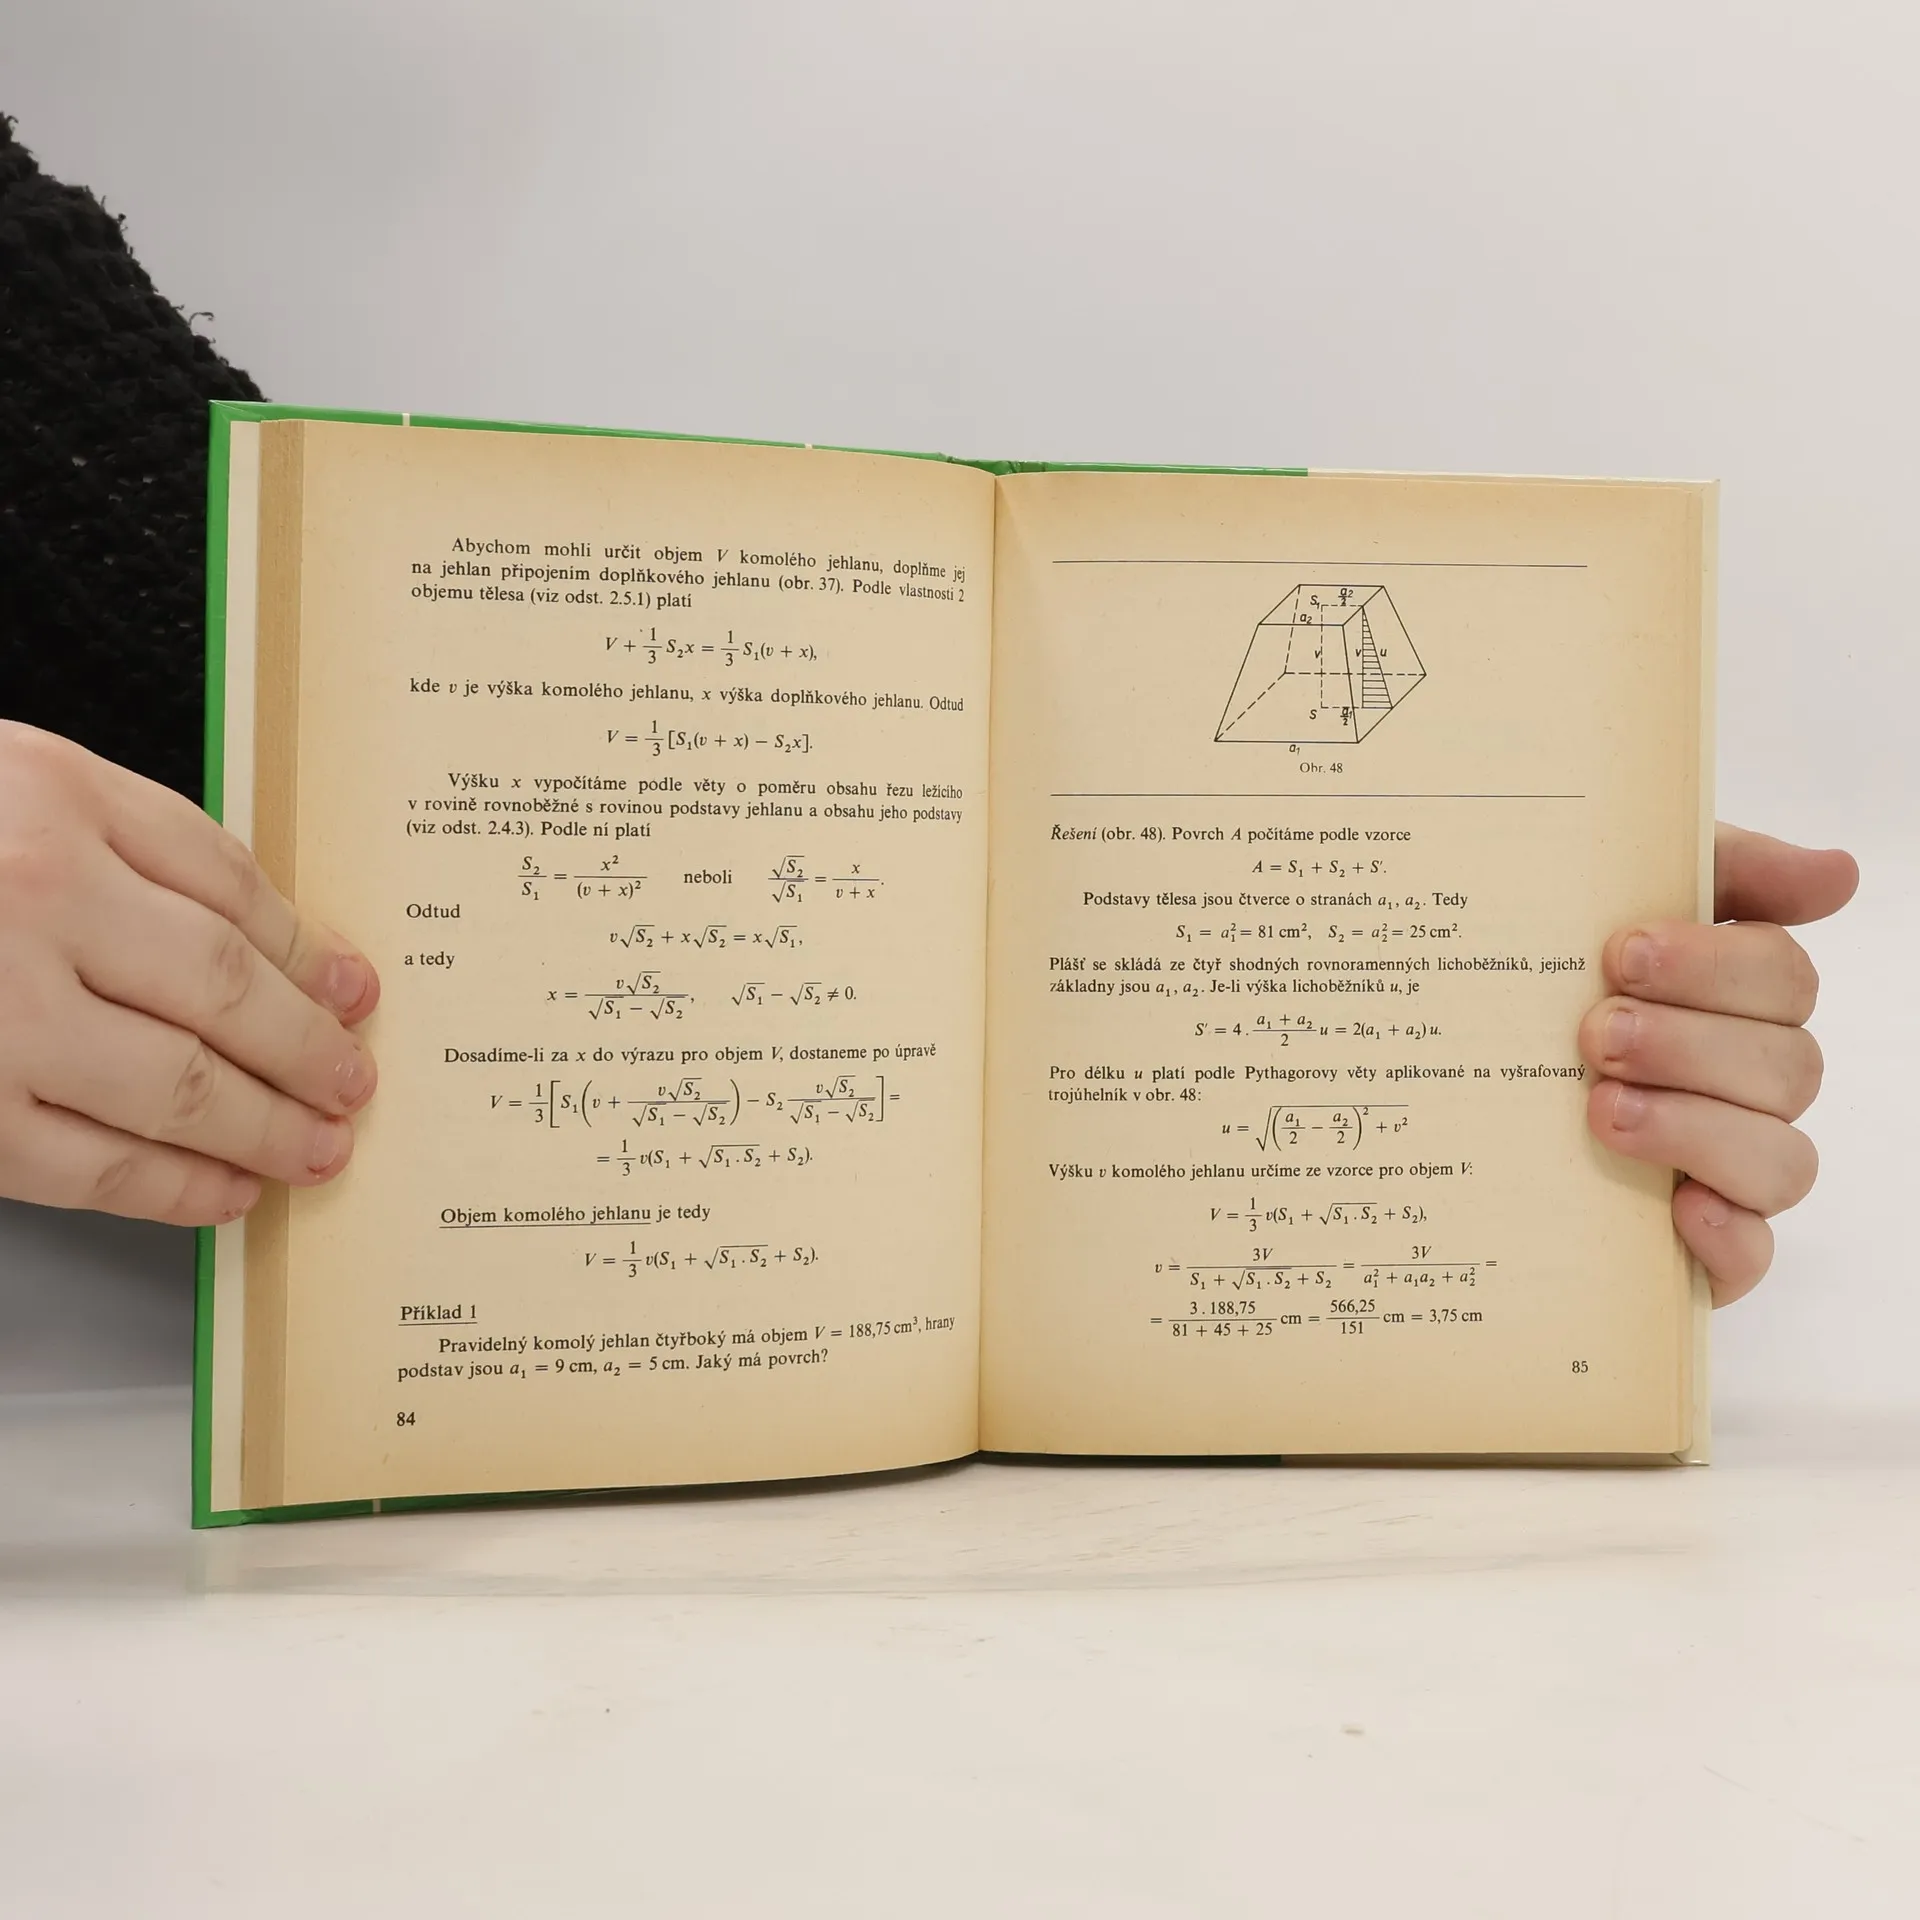 Abychom mohli určit objem V komolého jehlanu, doplňme jej
na jehlan připojením doplňkového jehlanu (obr. 37). Podle vlastnosti 2
objemu tělesa (viz odst. 2.5.1) platí
V + 1/3 S₂x = 1/3 S₁(v + x),
kde v je výška komolého jehlanu, x výška doplňkového jehlanu. Odtud
V = 1/3 [S₁(v + x) − S₂x].
Výšku x vypočítáme podle věty o poměru obsahu řezu ležícího
v rovině rovnoběžné s rovinou podstavy jehlanu a obsahu jeho podstavy
(viz odst. 2.4.3). Podle ní platí
S₂/S₁ = x²/(v + x)² neboli √S₂/√S₁ = x/(v + x).
Odtud
v√S₂ + x√S₂ = x√S₁,
a tedy
x = v√S₂/(√S₁ − √S₂), √S₁ − √S₂ ≠ 0.
Dosadíme-li za x do výrazu pro objem V, dostaneme po úpravě
V = 1/3 [S₁(v + v√S₂/(√S₁ − √S₂)) − S₂ v√S₂/(√S₁ − √S₂)] =
= 1/3 v(S₁ + √(S₁ . S₂) + S₂).
Objem komolého jehlanu je tedy
V = 1/3 v(S₁ + √(S₁ . S₂) + S₂).
Příklad 1
Pravidelný komolý jehlan čtyřboký má objem V = 188,75 cm³, hrany
podstav jsou a₁ = 9 cm, a₂ = 5 cm. Jaký má povrch?
84
S₁ a₂/2
a₂
v v u
S a₁/2
a₁
Obr. 48
Řešení (obr. 48). Povrch A počítáme podle vzorce
A = S₁ + S₂ + S′.
Podstavy tělesa jsou čtverce o stranách a₁, a₂. Tedy
S₁ = a₁² = 81 cm², S₂ = a₂² = 25 cm².
Plášť se skládá ze čtyř shodných rovnoramenných lichoběžníků, jejichž
základny jsou a₁, a₂. Je-li výška lichoběžníků u, je
S′ = 4 . (a₁ + a₂)/2 u = 2(a₁ + a₂) u.
Pro délku u platí podle Pythagorovy věty aplikované na vyšrafovaný
trojúhelník v obr. 48:
u = √((a₁/2 − a₂/2)² + v²)
Výšku v komolého jehlanu určíme ze vzorce pro objem V:
V = 1/3 v(S₁ + √(S₁ . S₂) + S₂),
v = 3V/(S₁ + √(S₁ . S₂) + S₂) = 3V/(a₁² + a₁a₂ + a₂²) =
= (3 . 188,75)/(81 + 45 + 25) cm = 566,25/151 cm = 3,75 cm
85